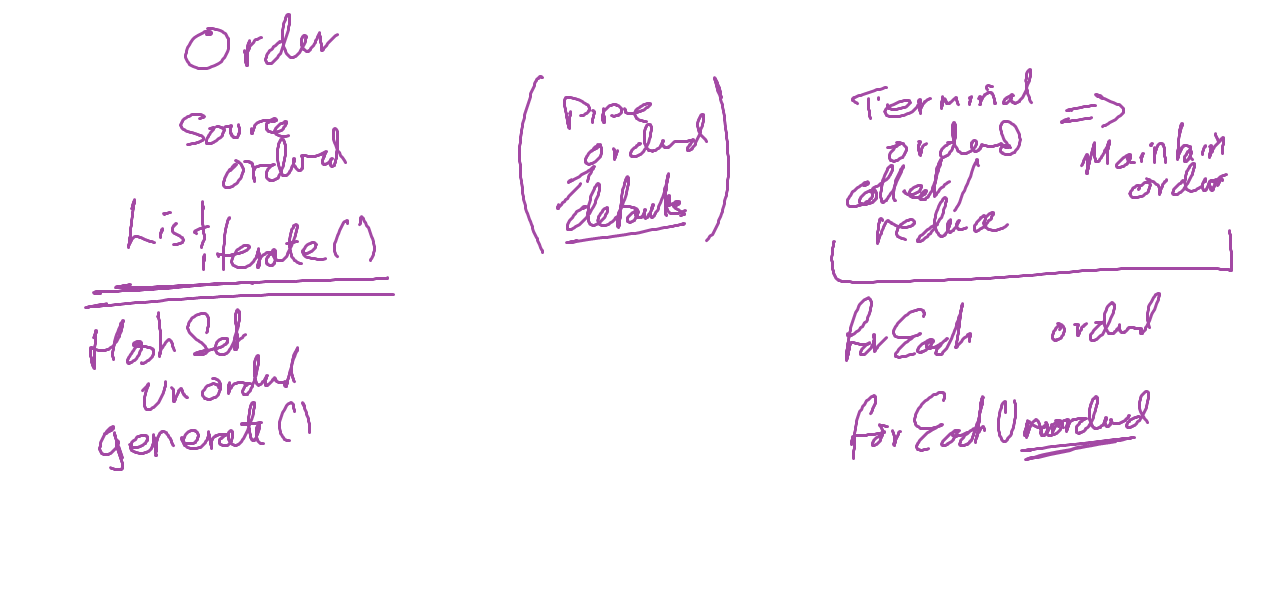 Order
Source
ordered
List
iterate()
HashSet
unordered
generate()
Pipe
ordered
default
Terminal
ordered
collect/
reduce
=> Maintain
order
forEach ordered
forEachUnordered